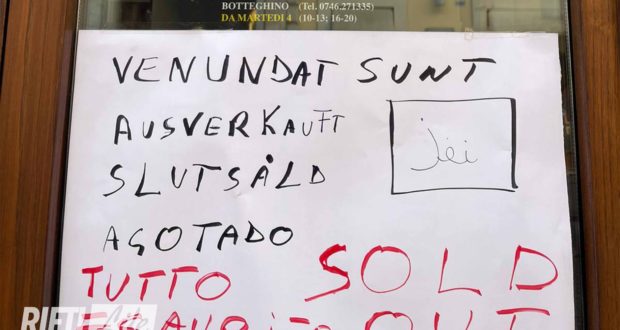 BOTTEGHINO (Tel. 0746.271335)
DA MARTEDI 4 (10-13; 16-20)
VENUNDAT SUNT
AUSVERKAUFT
SLUTSÅLD
AGOTADO
TUTTO
SOLD
OUT
RIETI Life